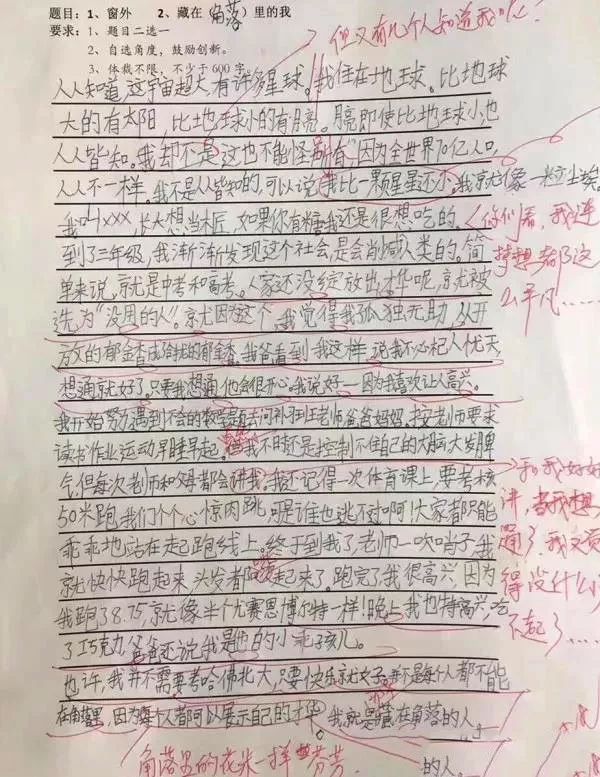 题目：1、窗外　2、藏在（角落）里的我
要求：1、题目二选一
2、自选角度，鼓励创新。
3、体裁不限，不少于600字。
但又有几个人知道我呢？
人人知道，这宇宙超大有许多星球。我住在地球。比地球
大的有太阳，比地球小的有月亮。月亮即使比地球小，也
人人皆知。我却不是这也不能怪所有，因为全世界70亿人口，
人人不一样。我不是人皆知的，可以说我比一颗星星还小，我就像一粒尘埃。
我叫xxx，长大想当木匠，如果你有糖我还是很想吃的。
到了三年级，我渐渐发现这个社会，是会消灭人类的。简
单来说，就是中考和高考。人家还没绽放出才华呢，就被
选为“没用的人”。就尤因为这个，我觉得我孤独无助，从开
放的郁金香成枯的郁金香。我爸看到我这样，说我不必杞人忧天，
想通就好了。只要我想通，他会很开心。我说好—因为我喜欢让人高兴。
我开始努力，遇到不会的数学题去问补习班老师爸爸妈妈，按老师要求
读书作业运动早睡早起。但我不时还是控制不住自己的大脑大发脾
气，但每次老师和父母都会讲我，我还记得一次体育课上，要考核
50米跑，我们个个心惊肉跳，可是谁也逃不过啊！大家都只能
乖乖地站在起跑线上。终于到我了，老师一吹哨子，我
就快快跑起来，头发都起来了。跑完了，我很高兴，因为
我跑了8.75，就像半个尤赛恩博尔特一样！晚上我也特高兴，吃
了巧克力，爸爸还说我是他的小乖孩儿。
也许，我并不需要考哈佛北大，只要快乐就好，并不是每个人都不能
在角落里，因为每个人都可以展示自己的才华。我就是藏在角落的人。
你们看，我连
梦想都这
么平凡……
和我好好
讲，当我想
通了，我又觉
得没什么
不起了……
角落里的花朵一样芬芳
的人